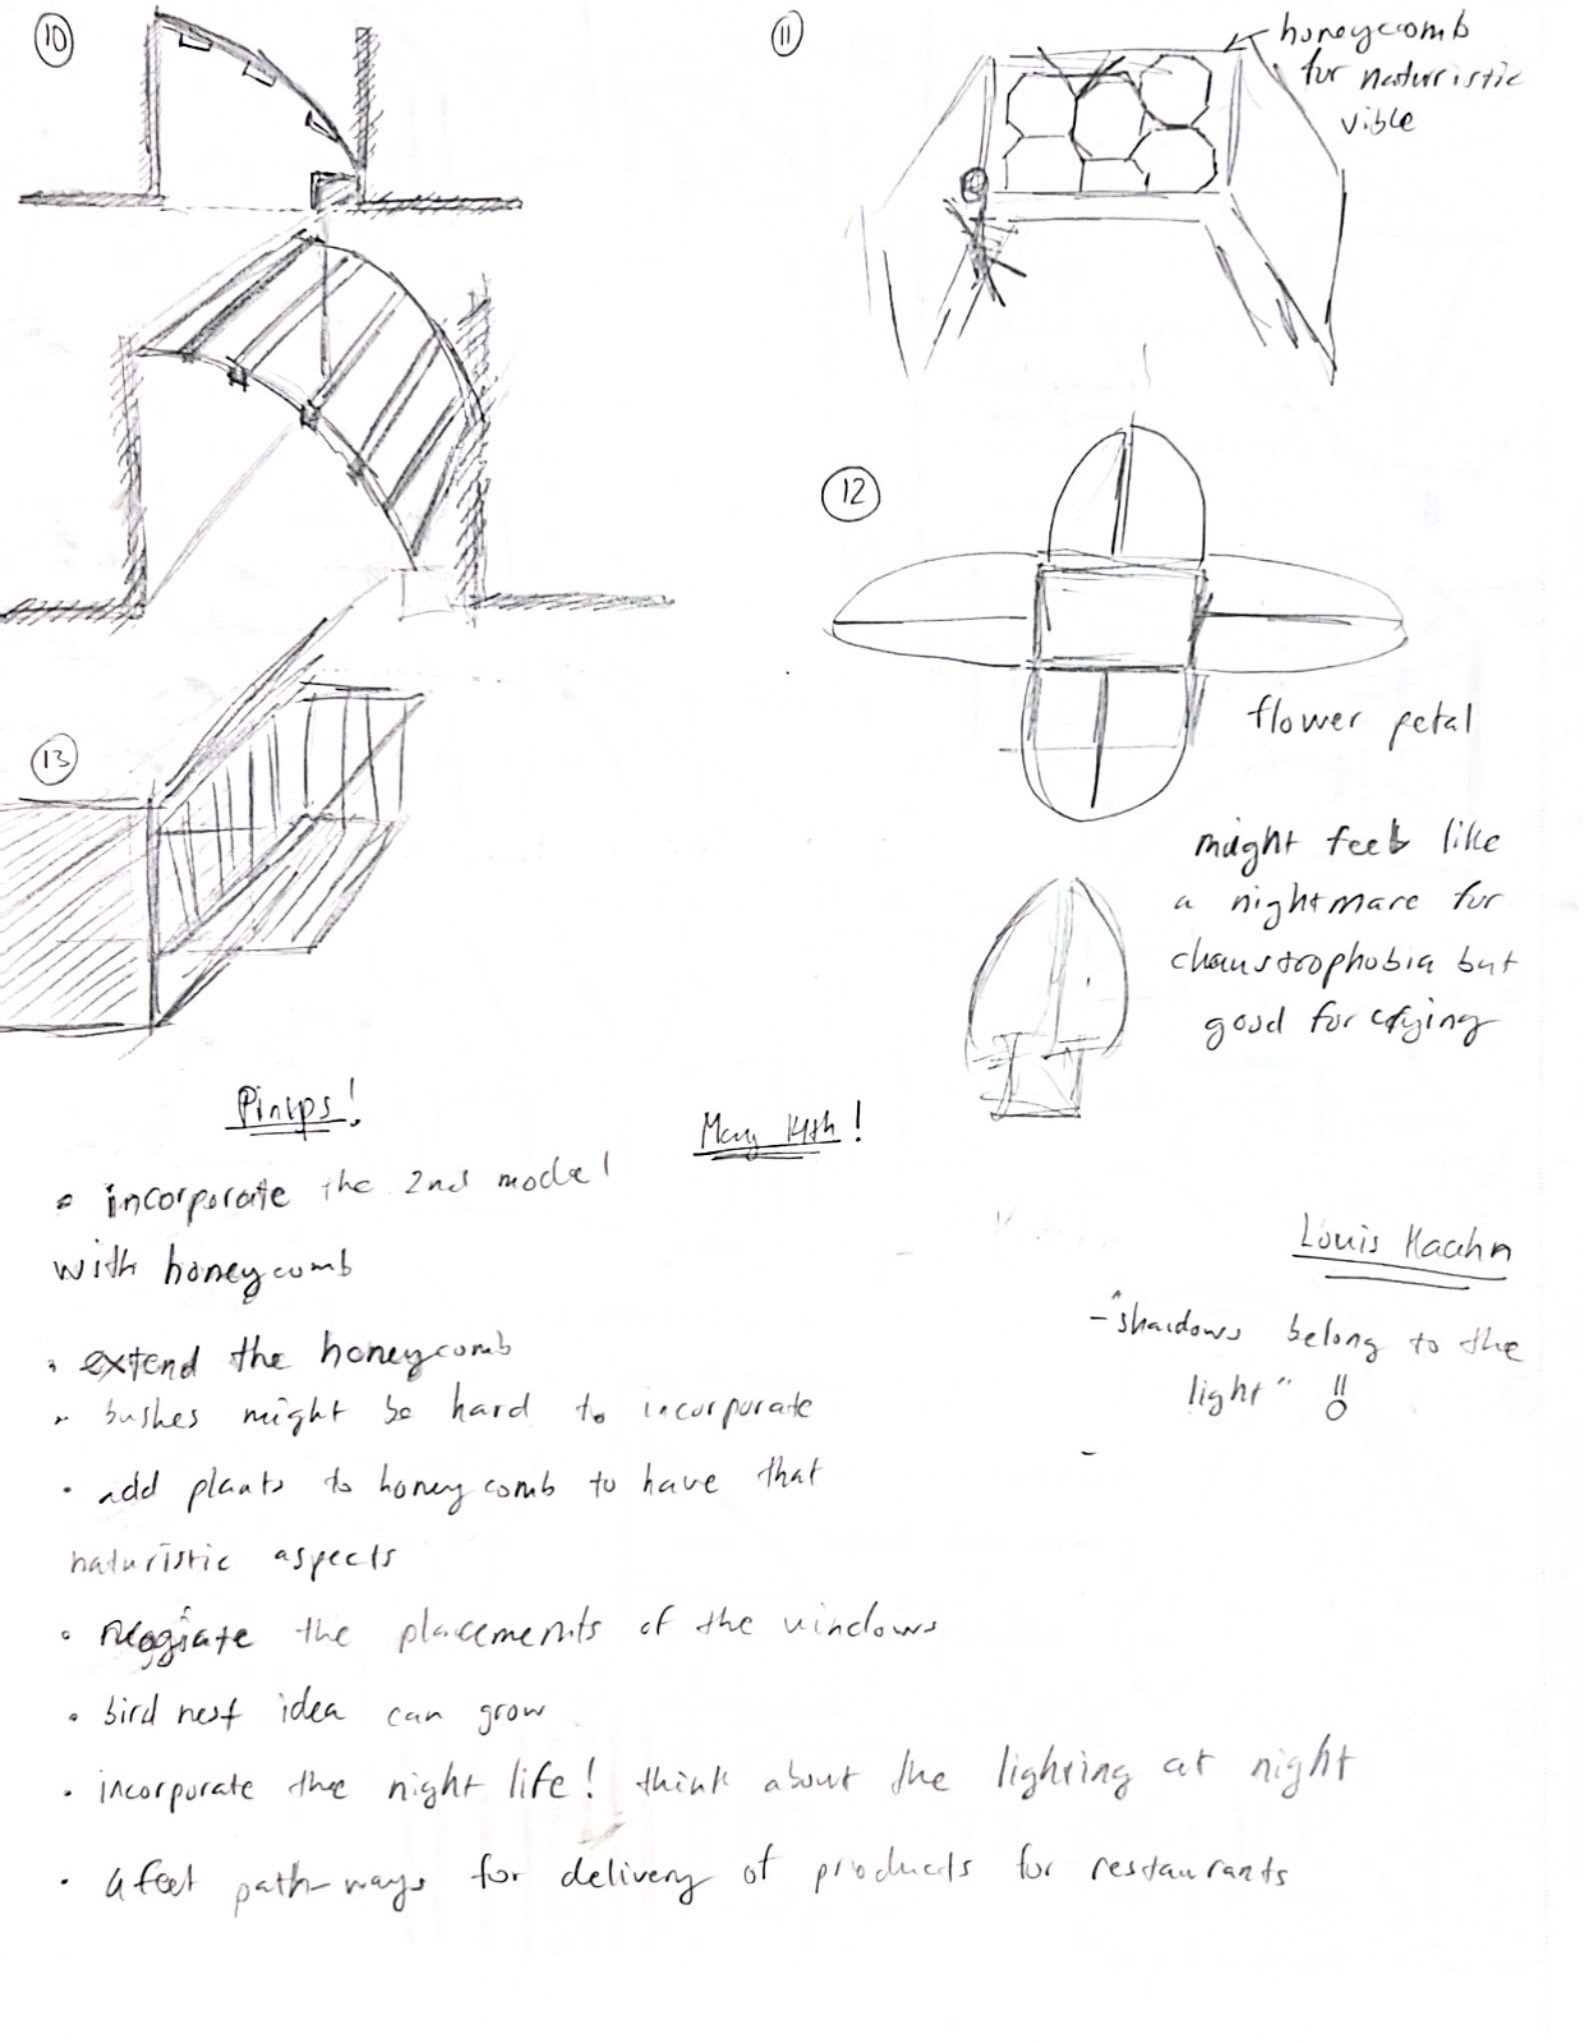 10
11
honeycomb
for naturristic
vible
12
flower petal
13
might feel like
a nightmare for
chaustrophobia but
good for crying
Pinups!
May 14th!
• incorporate the 2nd model
with honeycomb
• extend the honeycomb
• bushes might be hard to incorporate
• add plants to honeycomb to have that
naturistic aspects
• the placements of the windows
• bird nest idea can grow
• incorporate the night life! think about the lighting at night
• feet path-ways for delivery of products for restaurants
Louis Kaahn
- "shadows belong to the
light" !!
-